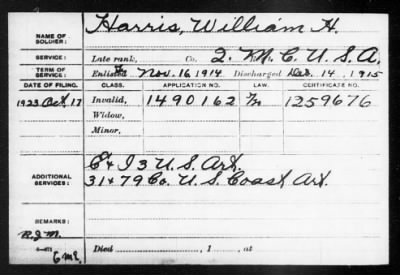 NAME OF SOLDIER: Harris, William H.
SERVICE: Late rank, Co. Q. M. C. U. S. A.
TERM OF SERVICE: Enlisted Nov. 16, 1914, Discharged Dec. 14, 1915
DATE OF FILING. CLASS. APPLICATION NO. LAW. CERTIFICATE NO.
1923 Oct. 17 Invalid, 1490162 1259676
Widow,
Minor,
ADDITIONAL SERVICES: & I 3 U. S. Art.
31 & 79 Co. U. S. Coast Art.
REMARKS:
Died , 1 , at